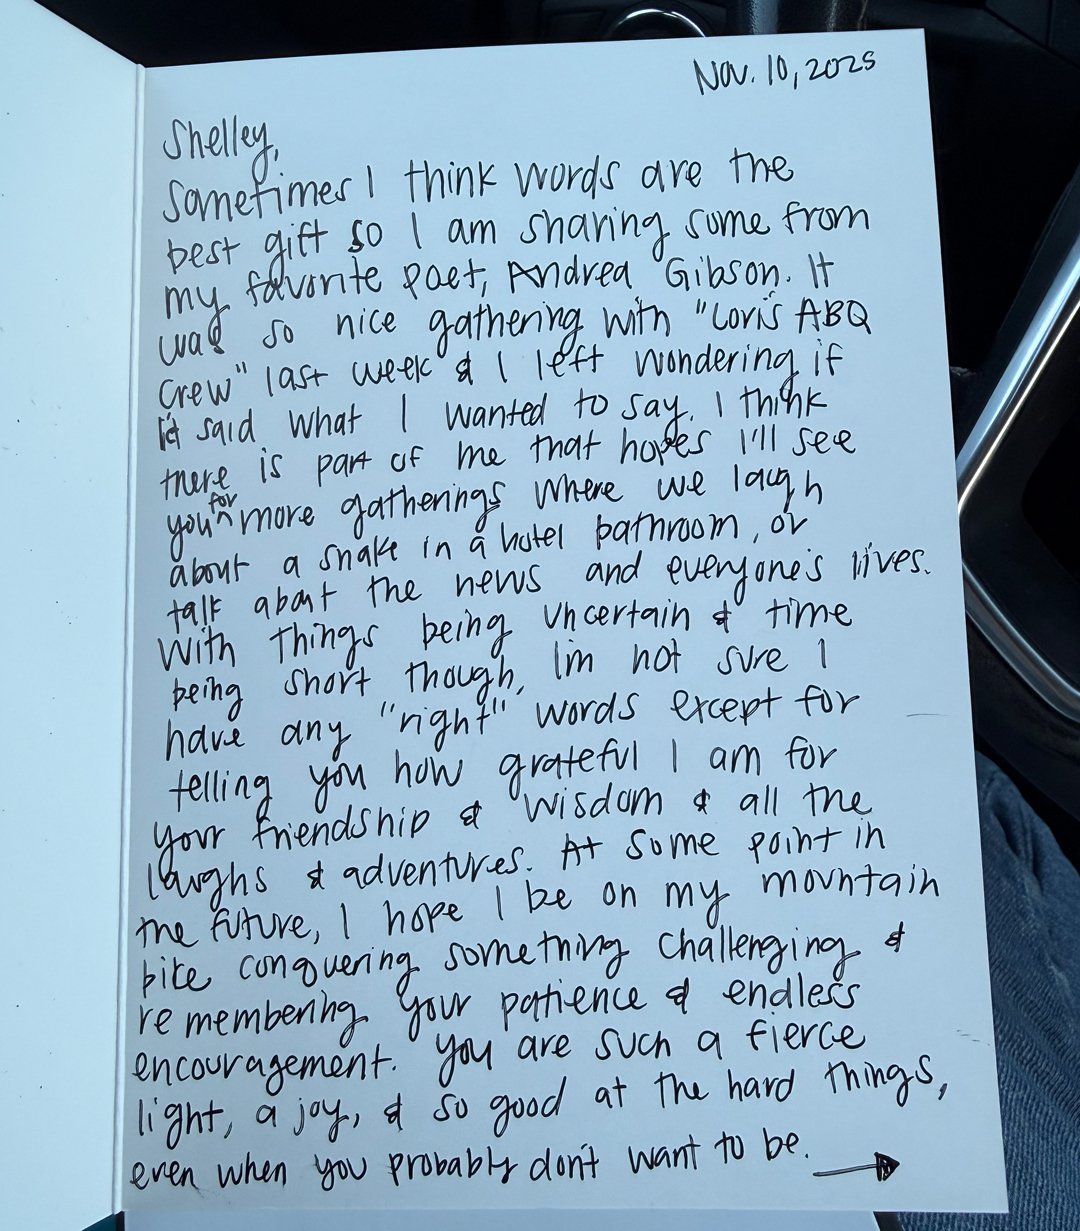 Nov. 10, 2025
Shelley,
Sometimes I think words are the
best gift so I am sharing some from
my favorite poet, Andrea Gibson. It
was so nice gathering with "Lori's ABQ
crew" last week & I left wondering if
I'd said what I wanted to say. I think
there is part of me that hopes I'll see
you for more gatherings where we laugh
about a snake in a hotel bathroom, or
talk about the news and everyone's lives.
With things being uncertain & time
being short though, I'm not sure I
have any "right" words except for
telling you how grateful I am for
your friendship & wisdom & all the
laughs & adventures. At some point in
the future, I hope I be on my mountain
bike conquering something challenging &
remembering your patience & endless
encouragement. You are such a fierce
light, a joy, & so good at the hard things,
even when you probably don't want to be. →